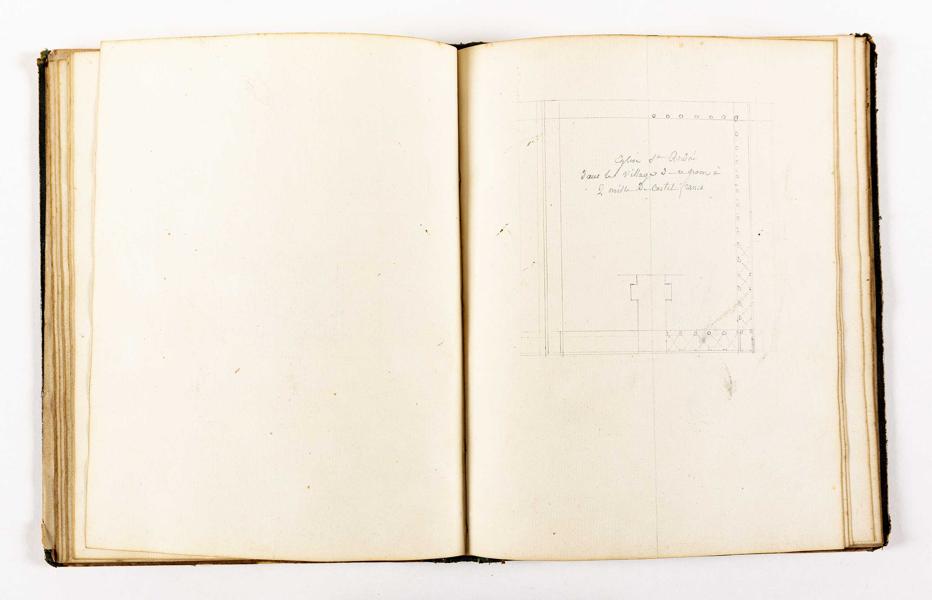 Eglise St André
Dans le Village D ce nom à
2 mille D Castel franc